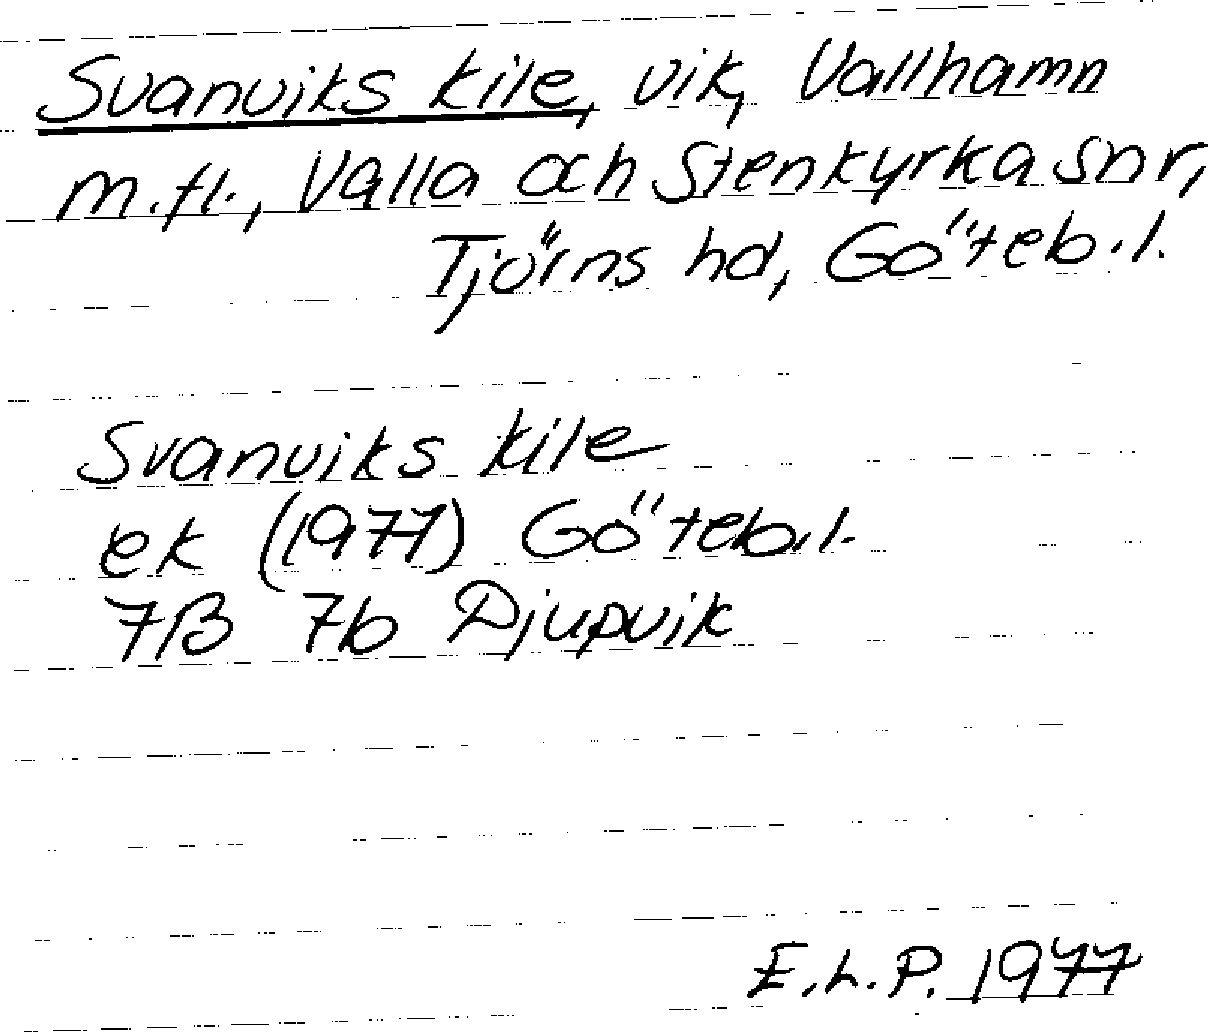 Svanviks kile, vik, Vallhamn
m.fl., Valla och Stenkyrka snr,
Tjörns hd, Göteb.l.
Svanviks kile
ek (1977) Göteb.l.
7B 7b Djupvik
E.L.P. 1977